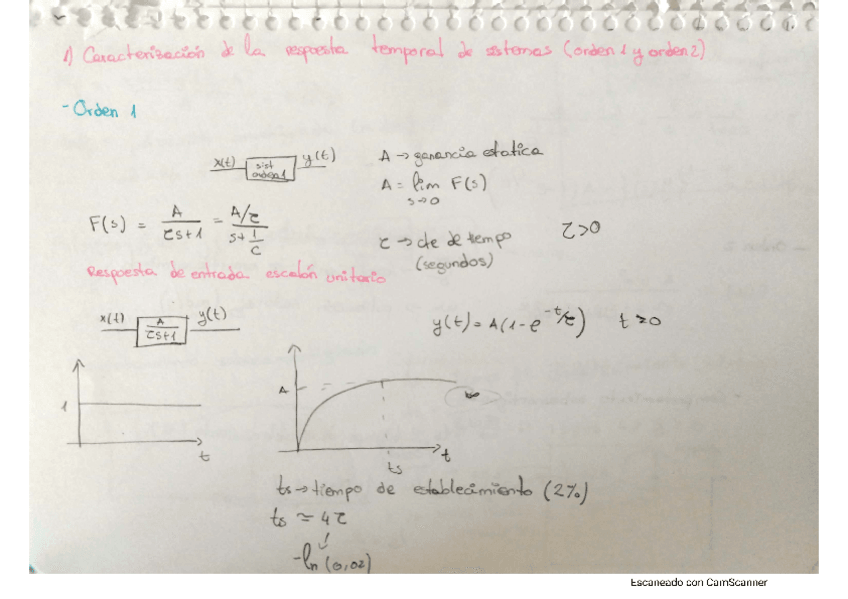 1) Caracterización de la respuesta temporal de sistemas (orden 1 y orden 2)
- Orden 1
x(t) sist orden 1 y(t)
A → ganancia estatica
A = lim F(s)
s→0
F(s) = A / τs+1 = A/τ / s+1/τ
τ → cte de tiempo
(segundos)
τ>0
Respuesta de entrada escalón unitario
x(t) A / τs+1 y(t)
y(t) = A(1 - e^-t/τ) t ≥ 0
1
t
A
ts
t
ts → tiempo de establecimiento (2%)
ts ≃ 4τ
↓
-ln (0,02)
Escaneado con CamScanner